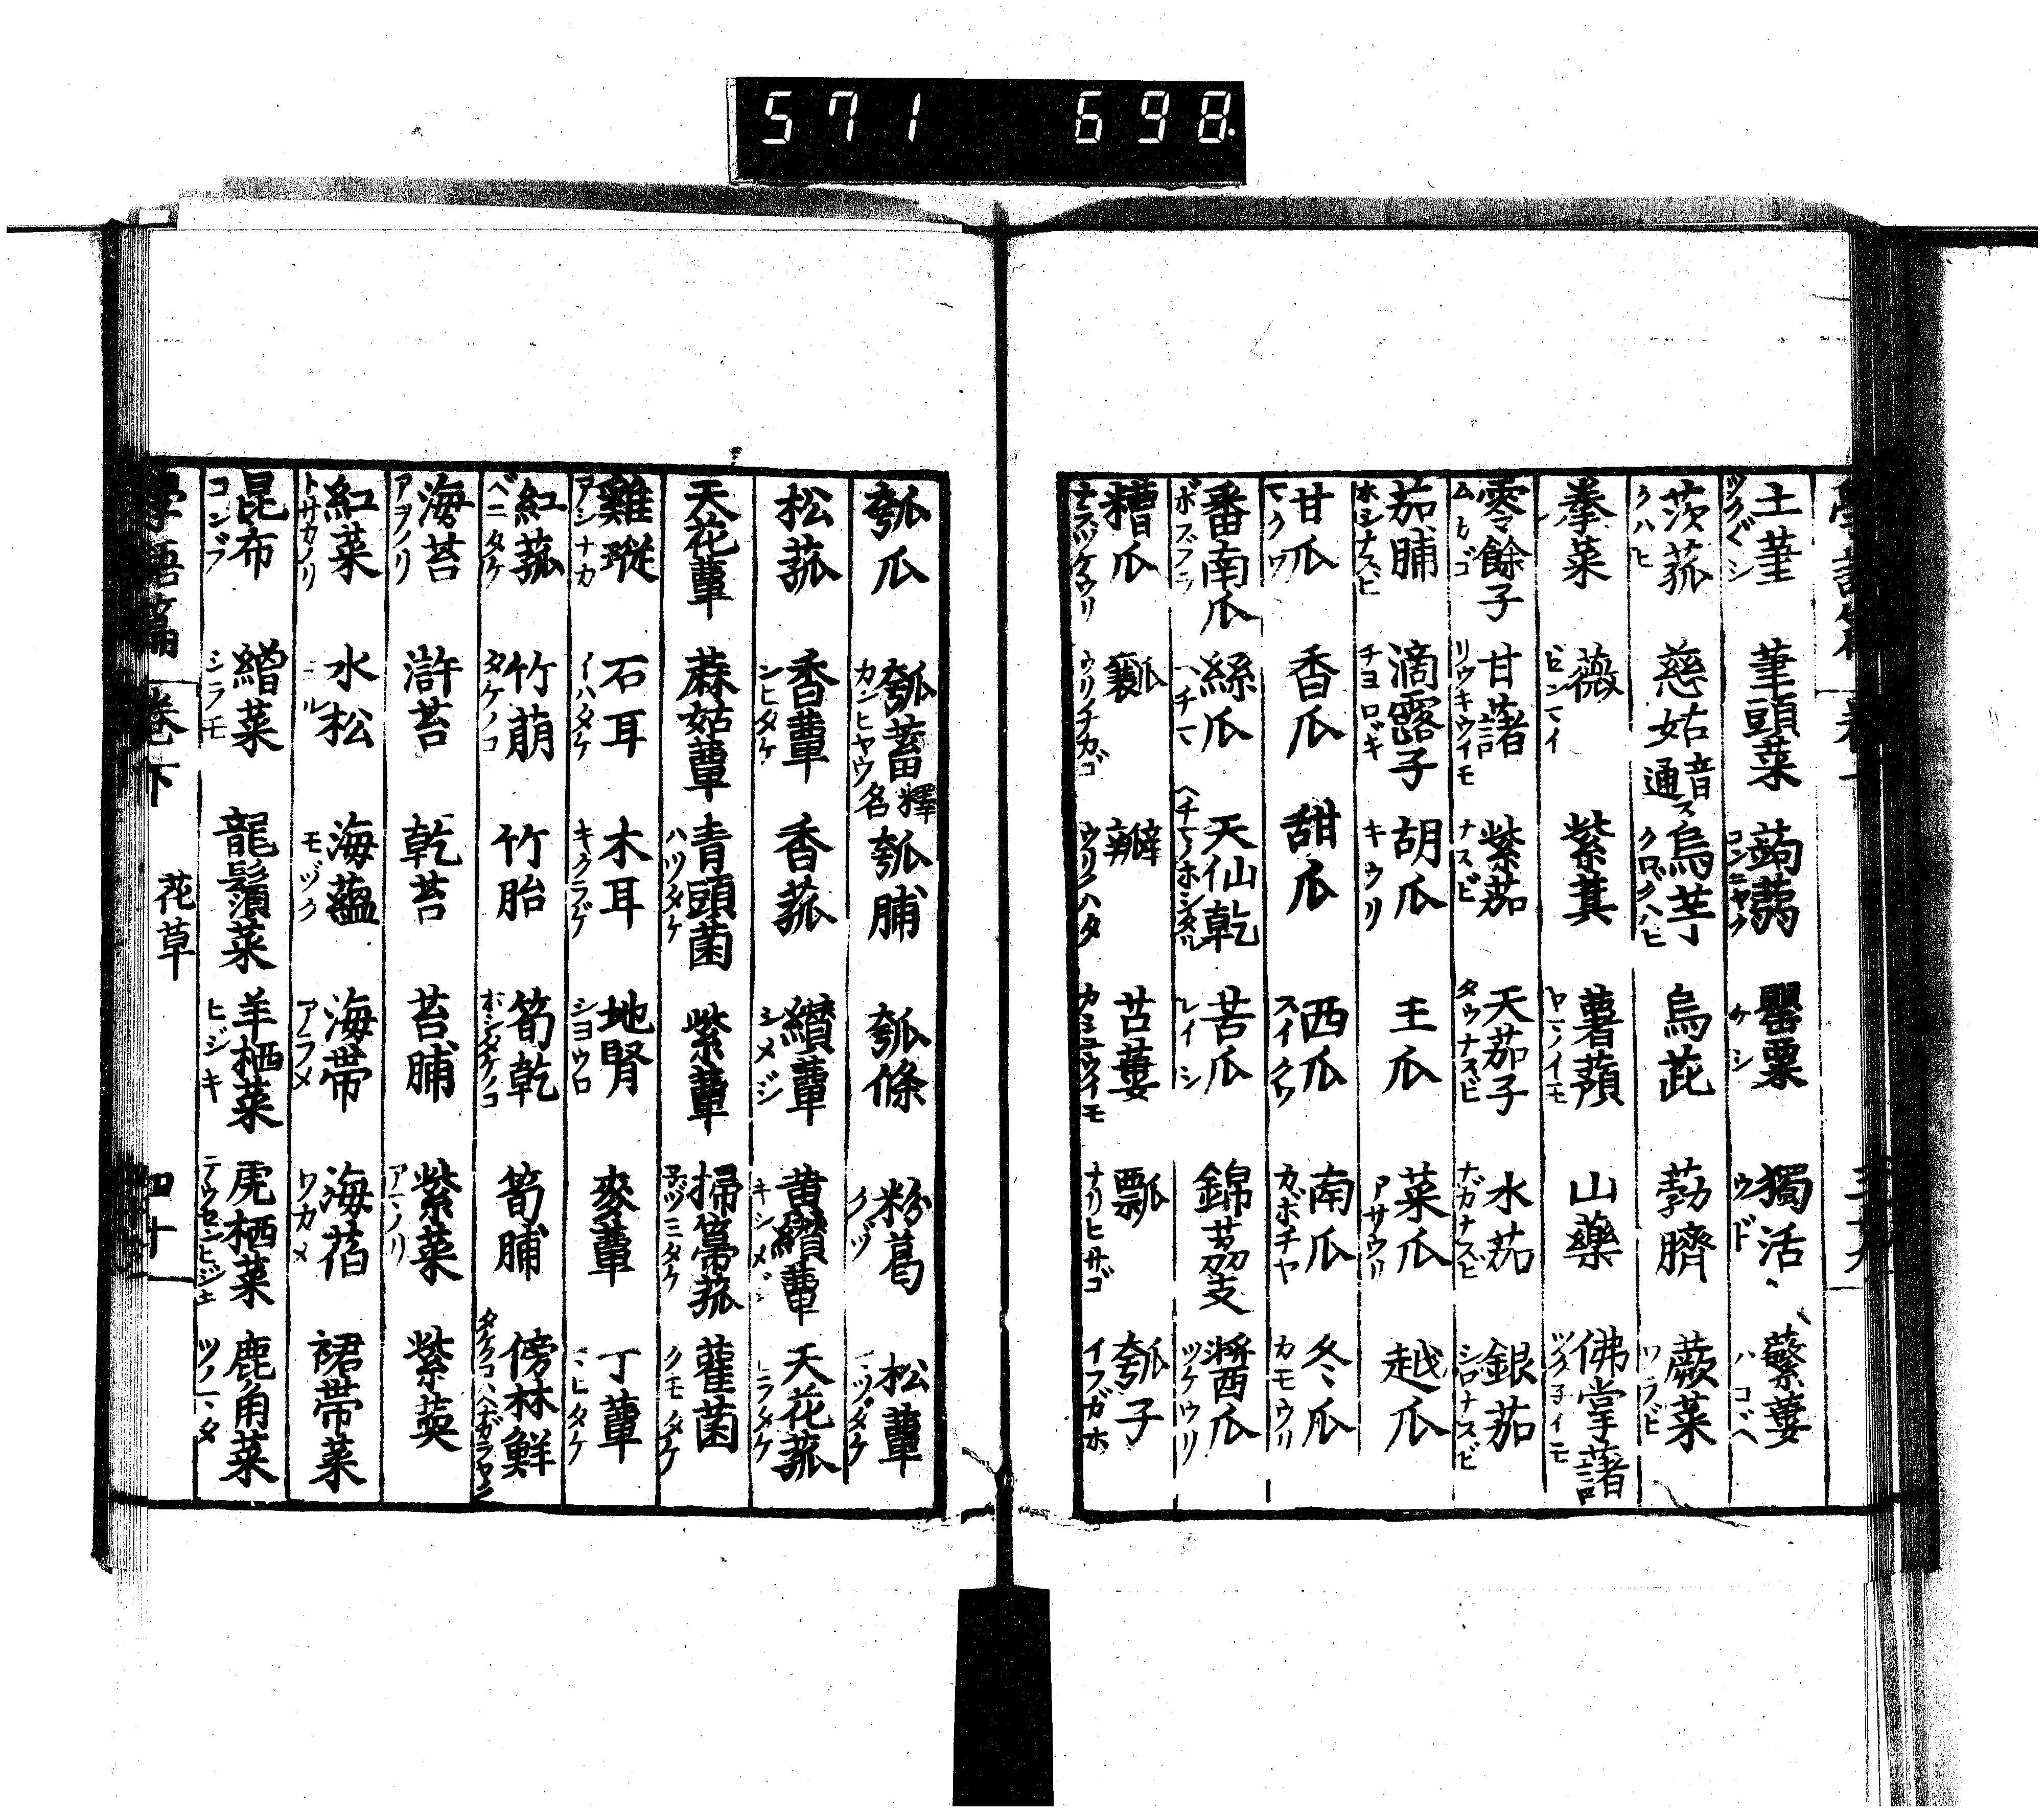 571 698
土菫 筆頭菜 蒟蒻 罌粟 獨活 蘩蔞
ツクヅクシ コンニヤク ケシ ウド ハコベ
茨菰 慈姑 音通ス 烏芋 烏茈 葧臍 蕨菜
クハヒ クログハヒ ワラビ
拳菜 薇 紫萁 薯蕷 山藥 佛掌藷
ゼンマイ ヤマノイモ ツク子イモ
零餘子 甘藷 紫茄 天茄子 水茄 銀茄
ムカゴ リウキウイモ ナスビ タウナスビ ナガナスビ シロナスビ
茄脯 滴露子 胡瓜 王瓜 菜瓜 越瓜
ホシナスビ チヨロギ キウリ アサウリ
甘瓜 香瓜 甜瓜 西瓜 南瓜 冬瓜
マクワ スイクワ カボチヤ カモウリ
番南瓜 絲瓜 天仙乾 苦瓜 錦荔支 醬瓜
ボブラ ヘチマ レイシ ツケウリ
糟瓜 瓤 瓣 苦蔞 瓢 瓠子
ナラヅケウリ ナリヒサゴ イフガホ
學語篇 卷下 花草 四十
瓠瓜 瓠蓄 釋名 瓠脯 瓠條 粉葛 松蕈
カンヒヤウ クヅ マツダケ
松菰 香蕈 香菰 纉蕈 黄纉蕈 天花菰
シヒタケ シメジ キシメジ ヒラタケ
天花蕈 蔴姑蕈 青頭菌 紫蕈 掃箒菰 雚菌
ハツタケ 子ヅミタケ クモタケ
雞㙡 石耳 木耳 地腎 麥蕈 丁蕈
アシナカ イハタケ キクラゲ シヨウロ
紅菰 竹萠 竹胎 筍乾 筍脯 傍林鮮
ベニタケ タケノコ ホシタケノコ
海苔 滸苔 乾苔 苔脯 紫菜 紫英
アヲノリ アマノリ
紅菜 水松 海蘊 海帶 海𦯉 裙帶菜
トサカノリ ミル モヅク アラメ ワカメ
昆布 繒菜 龍鬚菜 羊栖菜 虎栖菜 鹿角菜
コンブ シラモ ヒジキ ツノマタ